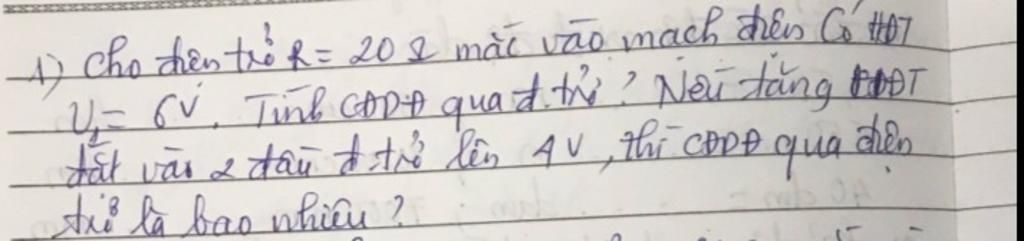 1) Cho điện trở R = 20 Ω mắc vào mạch điện Có HĐT
U₁ = 6V. Tính CĐDĐ qua đ.trở? Nếu tăng HĐT
đặt vào 2 đầu đ.trở lên 4V, thì CĐDĐ qua điện
trở là bao nhiêu?